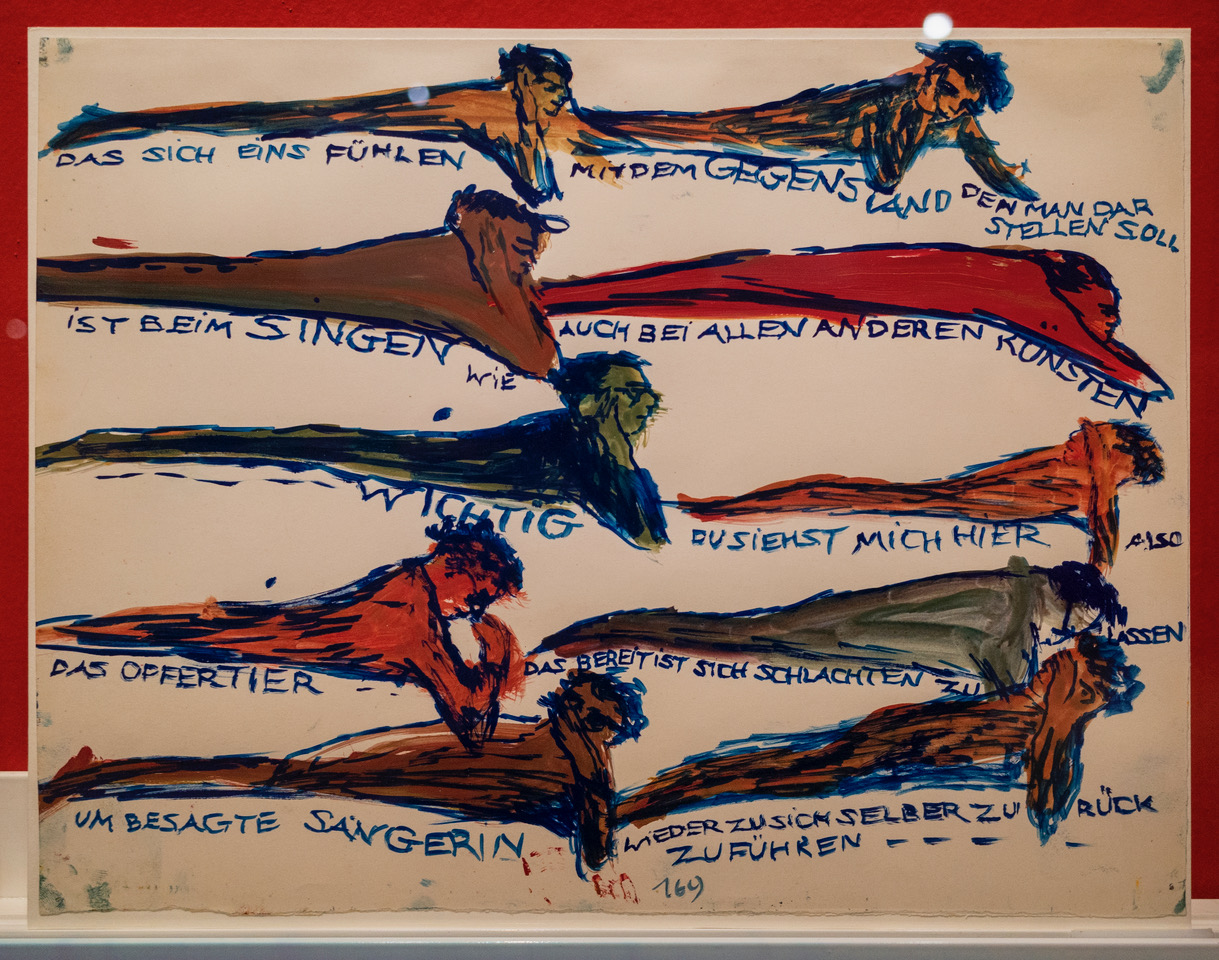 DAS SICH EINS FÜHLEN MIT DEM GEGENSTAND DEN MAN DAR
STELLEN SOLL
IST BEIM SINGEN WIE AUCH BEI ALLEN ANDEREN KÜNSTEN
WICHTIG DU SIEHST MICH HIER ALSO
DAS OPFERTIER DAS BEREIT IST SICH SCHLACHTEN ZU LASSEN
UM BESAGTE SÄNGERIN WIEDER ZU SICH SELBER ZU RÜCK
ZU FÜHREN – – – –
169